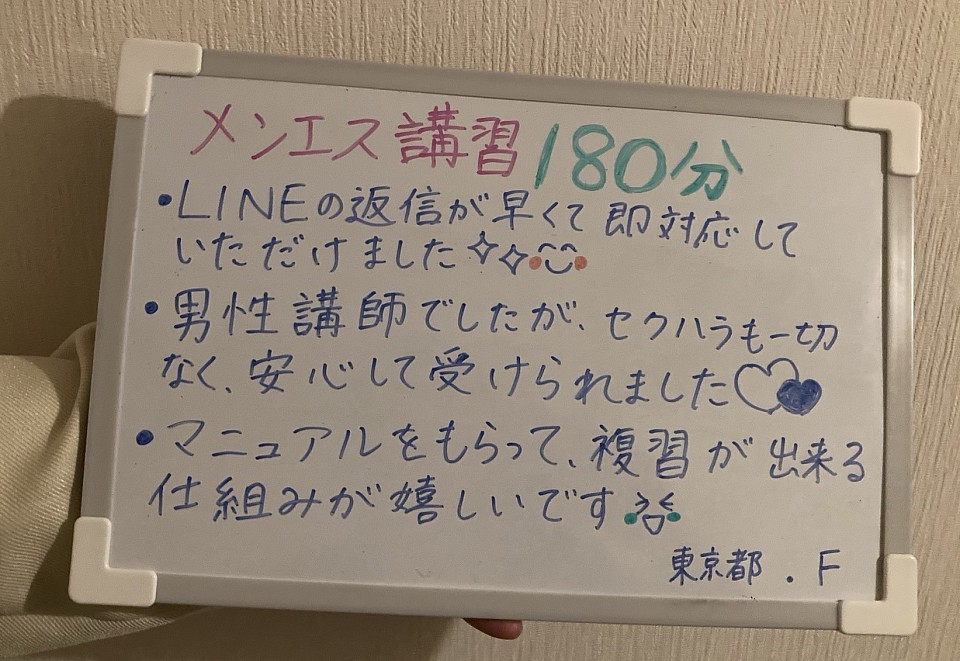 メンエス講習180分
•LINEの返信が早くて即対応して
いただけました
•男性講師でしたが、セクハラも一切
なく、安心して受けられました
•マニュアルをもらって、複習が出来る
仕組みが嬉しいです
東京都.F